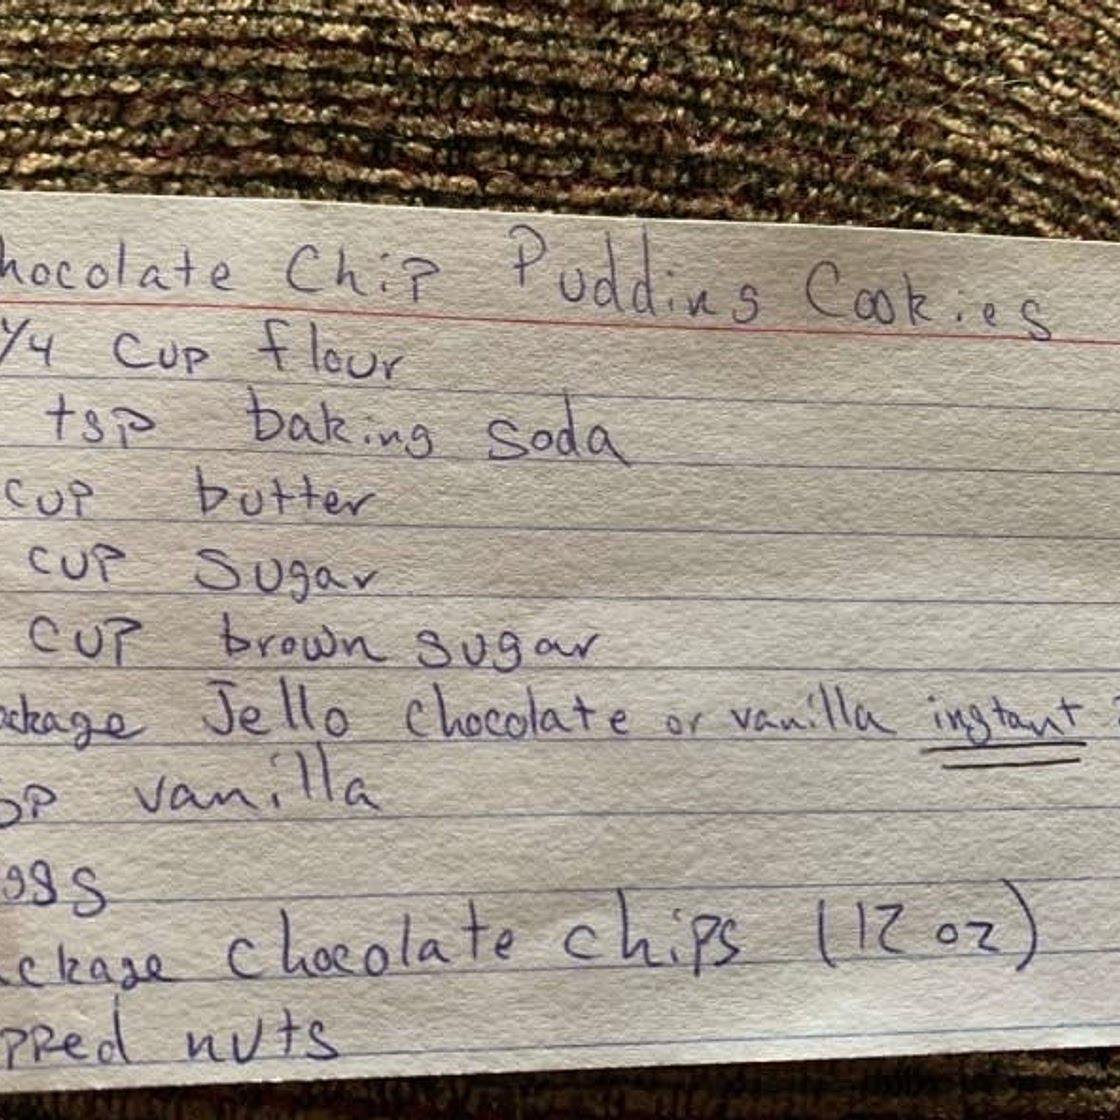 hocolate Chip Pudding Cookies
1/4 cup flour
tsp baking soda
cup butter
cup sugar
cup brown sugar
ackage Jello chocolate or vanilla instant
sp vanilla
ggs
ackage chocolate chips (12 oz)
pped nuts